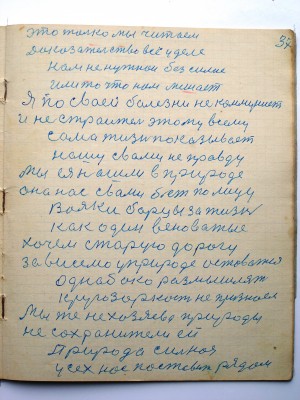 37
это только мы читаем
Доказательство всё уделе
Нам не нужное без силие
или то что нам мешает
Я по своей болезни не коммунист
и не страшен этому всему
сама жизнь показывает
нашу свами не правду
Мы ея нашли в природе
она нас свами бет по лицу
Вояки борцы за жизнь
как один виноватые
хочем старую дорогу
зависемо уприроде оставатся
однабоко размышлят
кругозоркост не признаем
Мы же не хозяева природы
не сохранители ей
Природа силная
усех нас поставит рядом